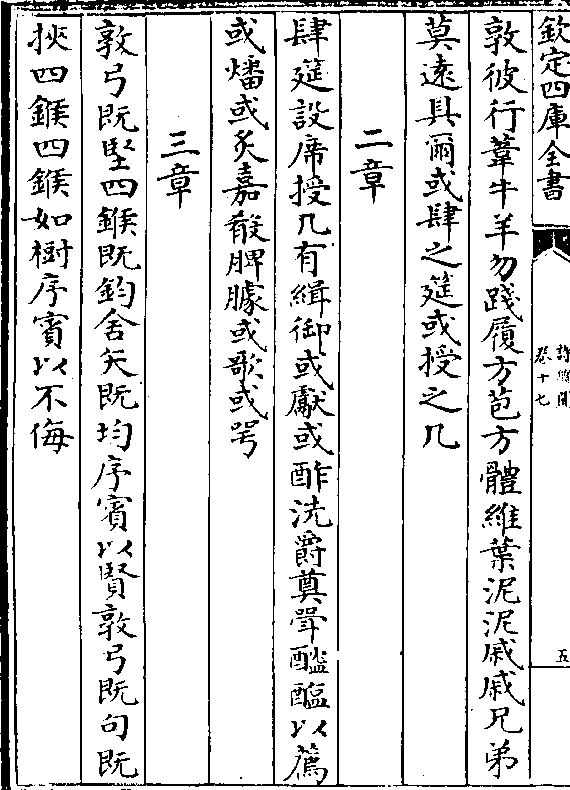 欽定四庫全書
卷十七
五
敦彼行葦牛羊勿踐履方苞方體維葉泥泥戚戚兄弟
莫遠具爾或肆之筵或授之几
二章
肆筵設席授几有緝御或獻或酢洗爵奠斝醓醢以薦
或燔或炙嘉殽脾臄或歌或咢
三章
敦弓既堅四鍭既鈞舍矢既均序賓以賢敦弓既句既
挾四鍭四鍭如樹序賓以不侮